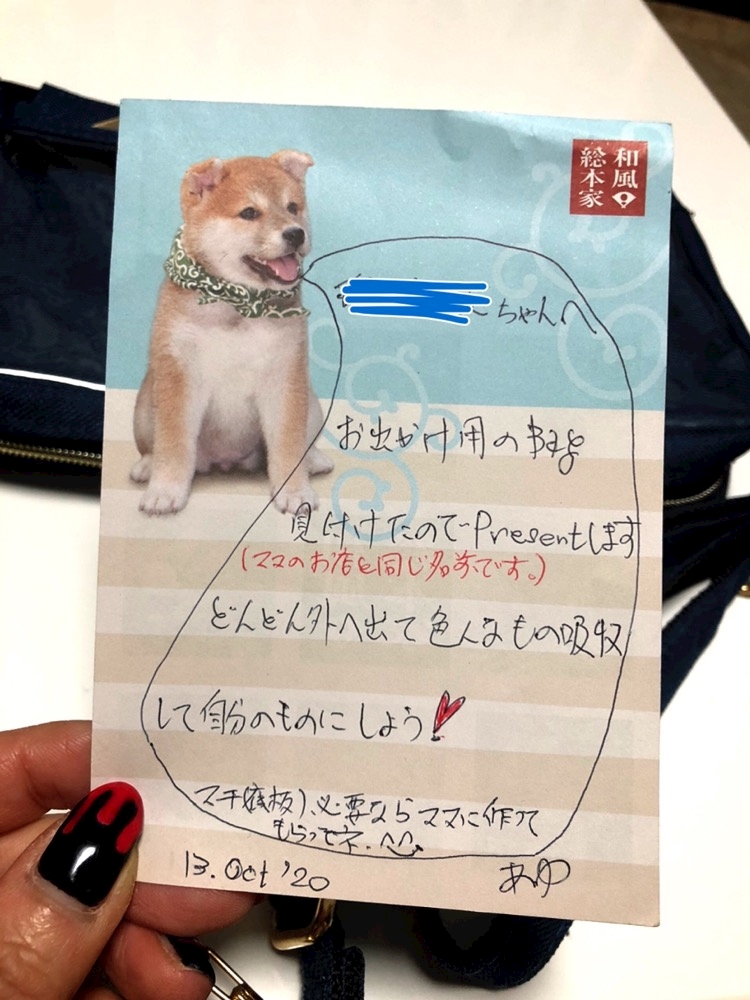 和風
総本家
ちゃんへ
お出かけ用のBag
見付けたのでPresentします
(ママのお店と同じ名前です。)
どんどん外へ出て色んなもの吸収
して自分のものにしよう!
マチ(底板)、必要ならママに作って
もらってネ.
13. Oct '20
あゆ